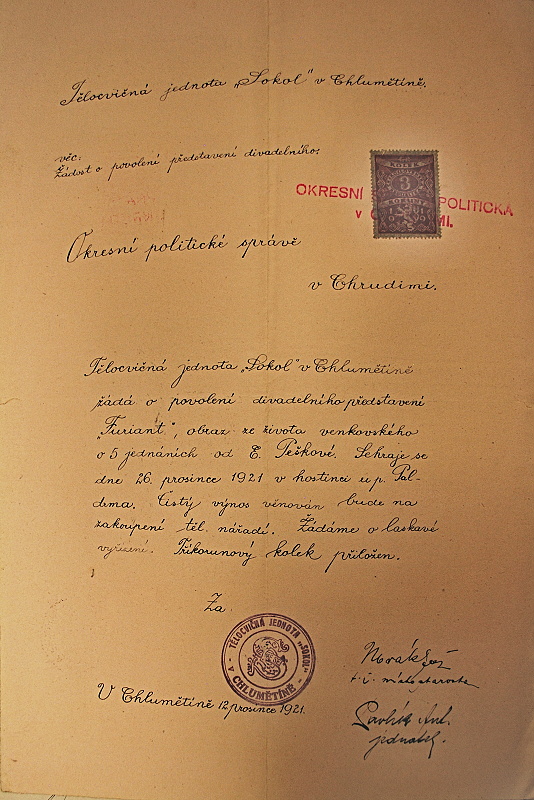 Tělocvičná jednota „Sokol" v Chlumětíně.
věc:
Žádost o povolení představení divadelního:
KOLEK
3
OKRESNÍ POLITICKÁ
v MI.
Okresní politické správě
v Chrudimi.
Tělocvičná jednota „Sokol" v Chlumětíně
žádá o povolení divadelního představení
„Furiant", obraz ze života venkovského
o 5 jednáních od E. Peškové. Sehraje se
dne 26. prosince 1921 v hostinci u p. Pal-
dma. Čistý výnos věnován bude na
zakoupení těl. nářadí. Žádáme o laskavé
vyřízení. Tříkorunový kolek přiložen.
Za
TĚLOCVIČNÁ JEDNOTA „SOKOL"
CHLUMĚTÍNĚ
V Chlumětíně 12 prosince 1921.
Novák
t. č. starosta
Ant.
jednatel.